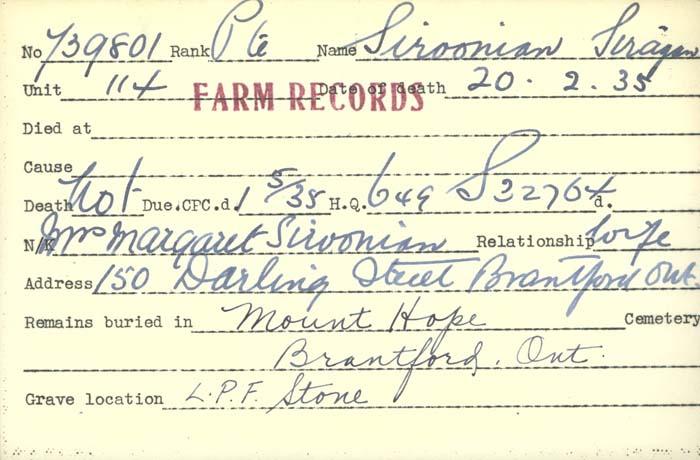 No 739801 Rank Pte Name Siroonian Seragan
Unit 114 FARM RECORDS Date of death 20. 2. 35
Died at
Cause
Death Not Due. CPC. d. 1 5/35 H.Q. 649 S 32764 d.
N/K Mrs Margaret Siroonian Relationship wife
Address 150 Darling Street Brantford Ont.
Remains buried in Mount Hope Cemetery
Brantford. Ont.
Grave location L.P.F. Stone